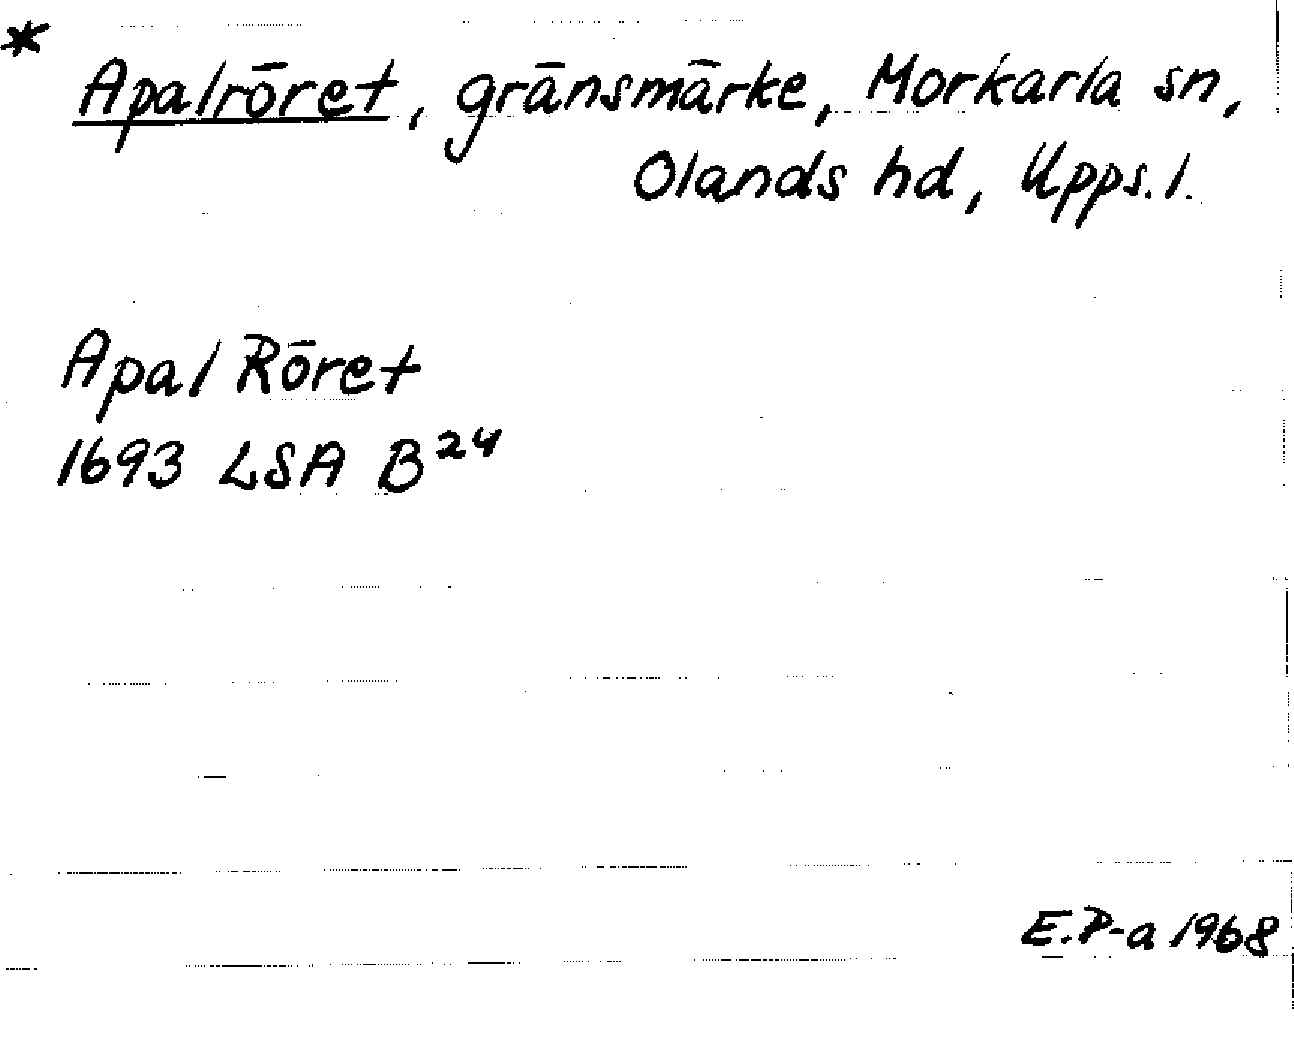 * Apalröret, gränsmärke, Morkarla sn,
Olands hd, Upps. l.
Apal Röret
1693 LSA B²⁴
E.P-a 1968